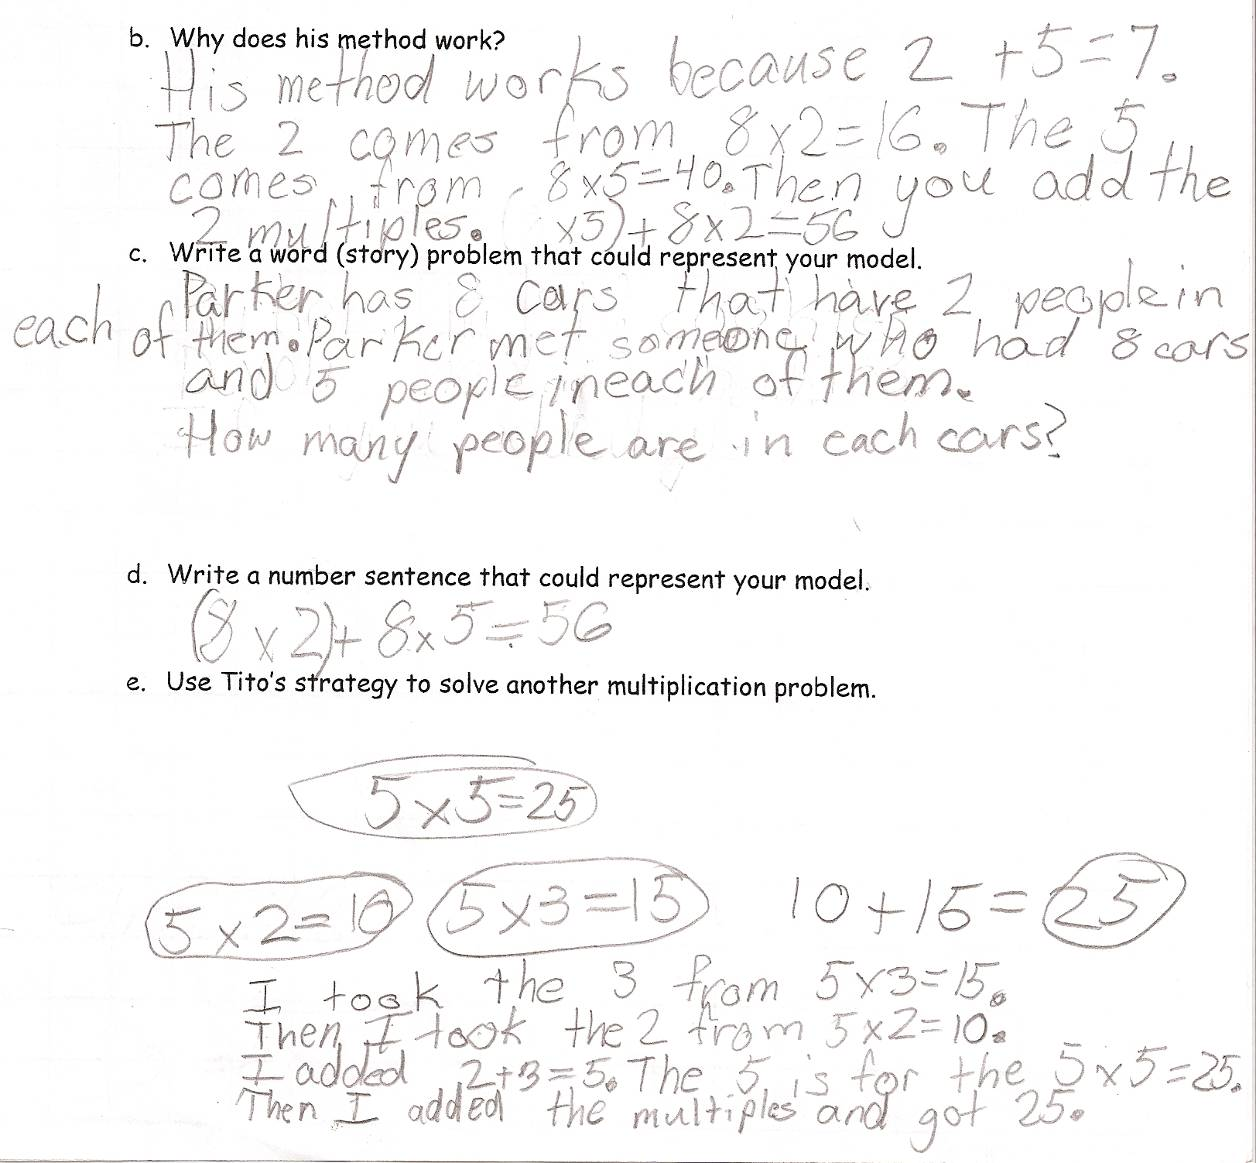 b. Why does his method work?
His method works because 2 +5=7.
The 2 comes from 8x2=16. The 5
comes from 8x5=40. Then you add the
2 multiples. x5)+8x2=56
c. Write a word (story) problem that could represent your model.
Parker has 8 cars that have 2 people in
each of them. Parker met someone who had 8 cars
and 5 people in each of them.
How many people are in each cars?
d. Write a number sentence that could represent your model.
(8x2)+8x5=56
e. Use Tito's strategy to solve another multiplication problem.
5x5=25
5x2=10 5x3=15 10+15=25
I took the 3 from 5x3=15.
Then I took the 2 from 5x2=10.
I added 2+3=5. The 5 is for the 5x5=25.
Then I added the multiples and got 25.